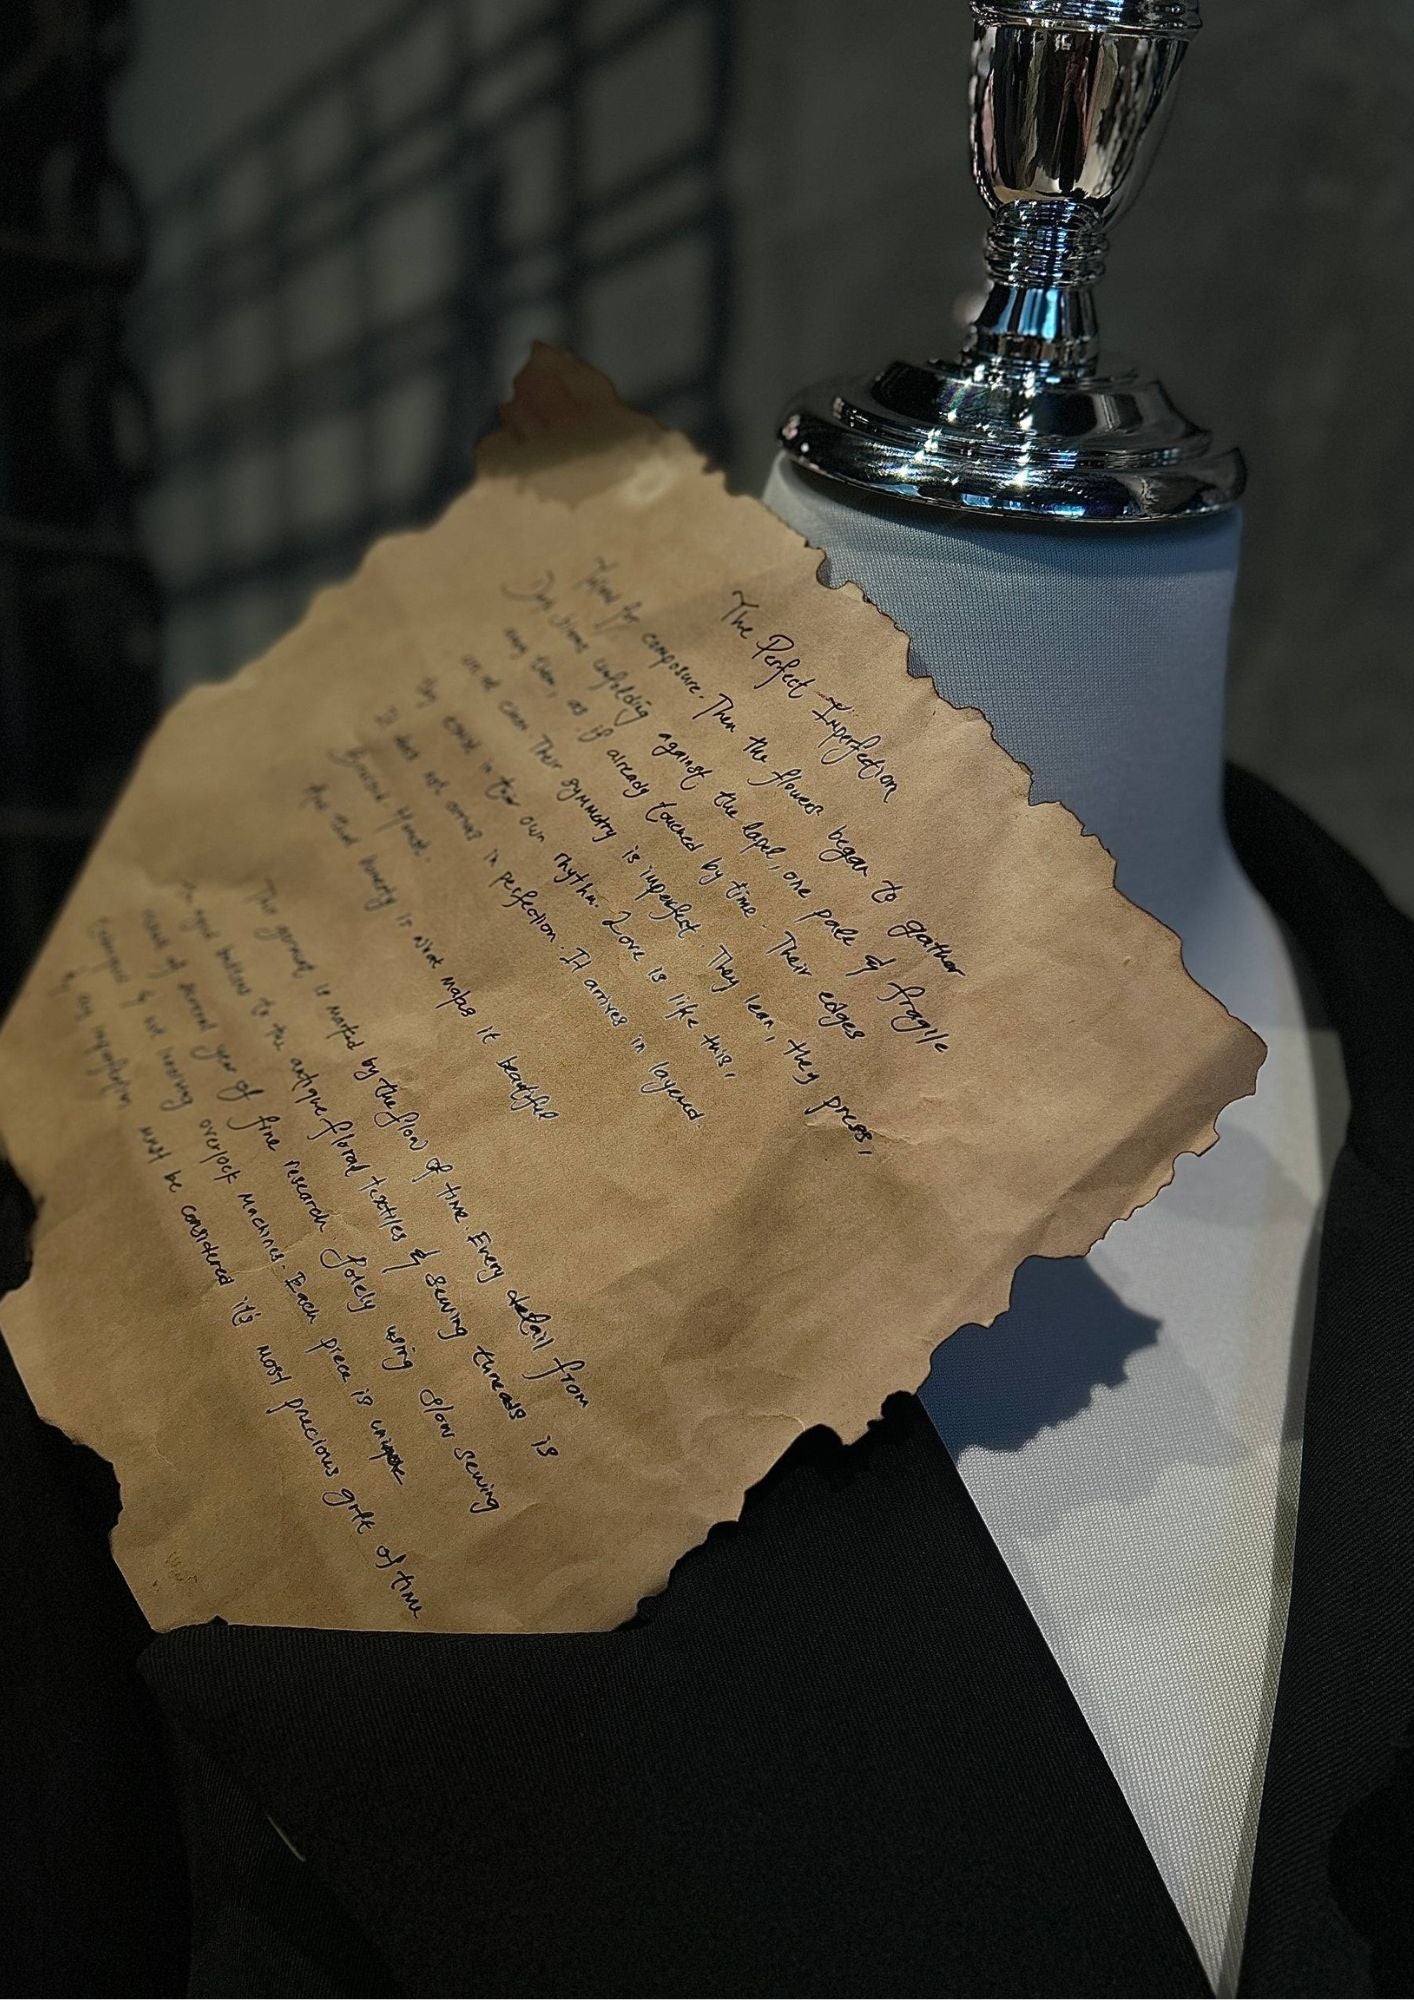 The Perfect Imperfection
for composure. Then the flowers began to gather
unfolding against the lapel, one pale & fragile
as if already touched by time. Their edges
Their symmetry is imperfect. They lean, they press,
exist in their own rhythm. Love is like this,
It does not arrive in perfection. It arrives in layered
honesty is what makes it beautiful
This garment is marked by the flow of time. Every detail from
buttons to the antique floral textiles & sewing threads is
of several year of fine research. Solely using slow sewing
overlock machines. Each piece is unique
must be considered it's most precious gift of time